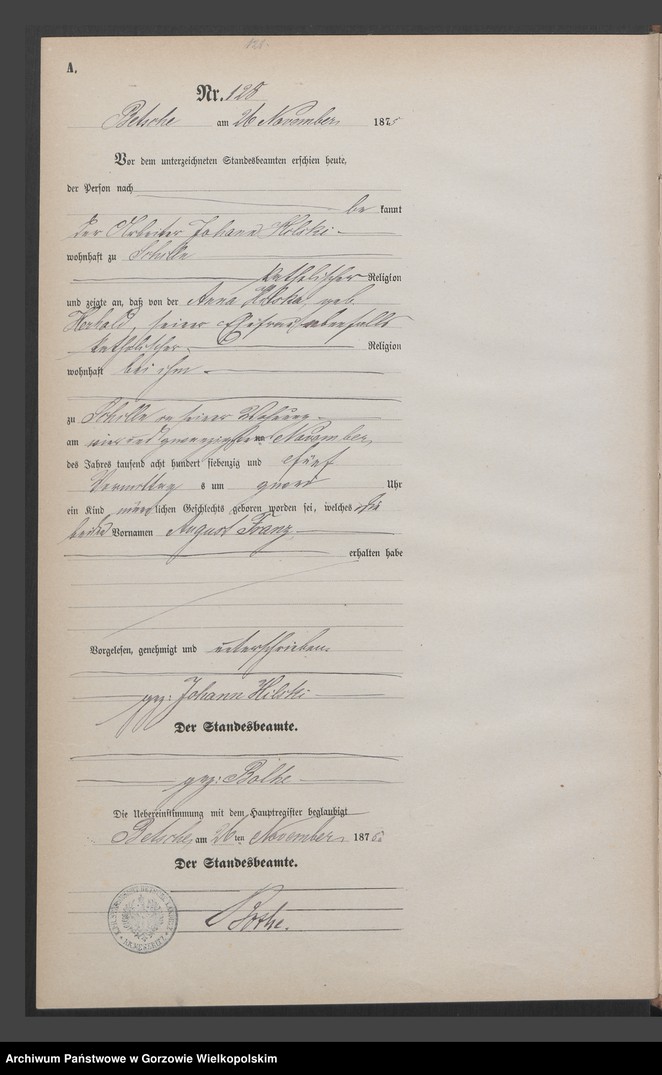 A.
Nr. 128
Betsche am 26 November 1875
Vor dem unterzeichneten Standesbeamten erschien heute,
der Person nach
be kannt
der Arbeiter Johann Hilski
wohnhaft zu Schille
katholischer Religion
und zeigte an, daß von der Anna Hilska, geb.
seiner Ehefrau, ebenfalls
katholischer Religion
wohnhaft bei ihm
zu Schille in seiner Wohnung
am vier und zwanzigsten November
des Jahres tausend acht hundert siebenzig und fünf
Vormittag s um Uhr
ein Kind männlichen Geschlechts geboren worden sei, welches die
beiden Vornamen August Franz
erhalten habe
Vorgelesen, genehmigt und unterschrieben
gez: Johann Hilski
Der Standesbeamte.
gez: Bothe
Die Uebereinstimmung mit dem Hauptregister beglaubigt
Betsche, am 26 ten November 187
Der Standesbeamte.
Bothe.
Archiwum Państwowe w Gorzowie Wielkopolskim